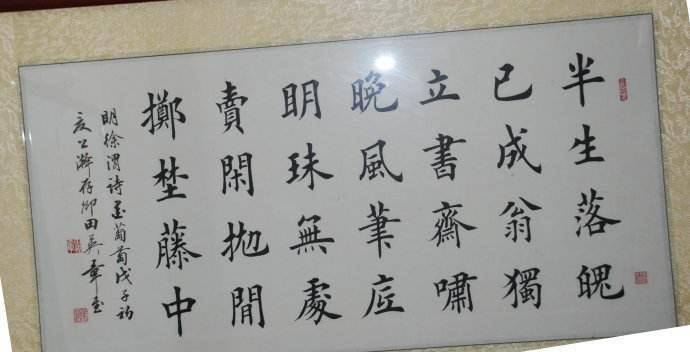 半生落魄
已成翁獨
立書齋嘯
晚風筆底
明珠無處
賣閑拋閒
擲埜藤中
明徐渭詩墨葡萄戊子初
夏田英章書